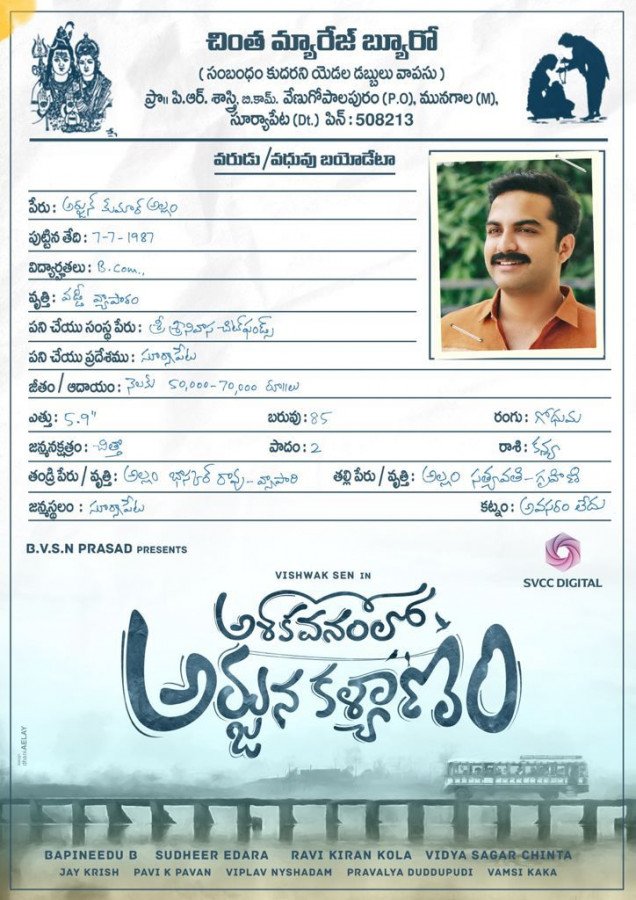 చింత మ్యారేజ్ బ్యూరో
( సంబంధం కుదరని యెడల డబ్బులు వాపసు )
ప్రొ॥ పి.ఆర్. శాస్త్రి, బి.కామ్. వేణుగోపాలపురం (P.O), మునగాల (M),
సూర్యాపేట (Dt.) పిన్ : 508213
వరుడు / వధువు బయోడేటా
పేరు : అర్జున్ కుమార్ అల్లం
పుట్టిన తేది : 7-7-1987
విద్యార్హతలు : B.com.,
వృత్తి : వడ్డీ వ్యాపారం
పని చేయు సంస్థ పేరు : శ్రీ శ్రీనివాస చిట్‌ఫండ్స్
పని చేయు ప్రదేశము : సూర్యాపేట
జీతం / ఆదాయం : నెలకు 50,000-70,000 రూ॥లు
ఎత్తు : 5.9" బరువు : 85 రంగు : గోధుమ
జన్మనక్షత్రం : చిత్తా పాదం : 2 రాశి : కన్యా
తండ్రి పేరు / వృత్తి : అల్లం భాస్కర్ రావు - వ్యాపారి తల్లి పేరు / వృత్తి : అల్లం సత్యవతి - గృహిణి
జన్మస్థలం : సూర్యాపేట కట్నం : అవసరం లేదు
B.V.S.N PRASAD PRESENTS
SVCC DIGITAL
VISHWAK SEN IN
అశోకవనంలో
అర్జున కళ్యాణం
BAPINEEDU B SUDHEER EDARA RAVI KIRAN KOLA VIDYA SAGAR CHINTA
JAY KRISH PAVI K PAVAN VIPLAV NYSHADAM PRAVALYA DUDDUPUDI VAMSI KAKA